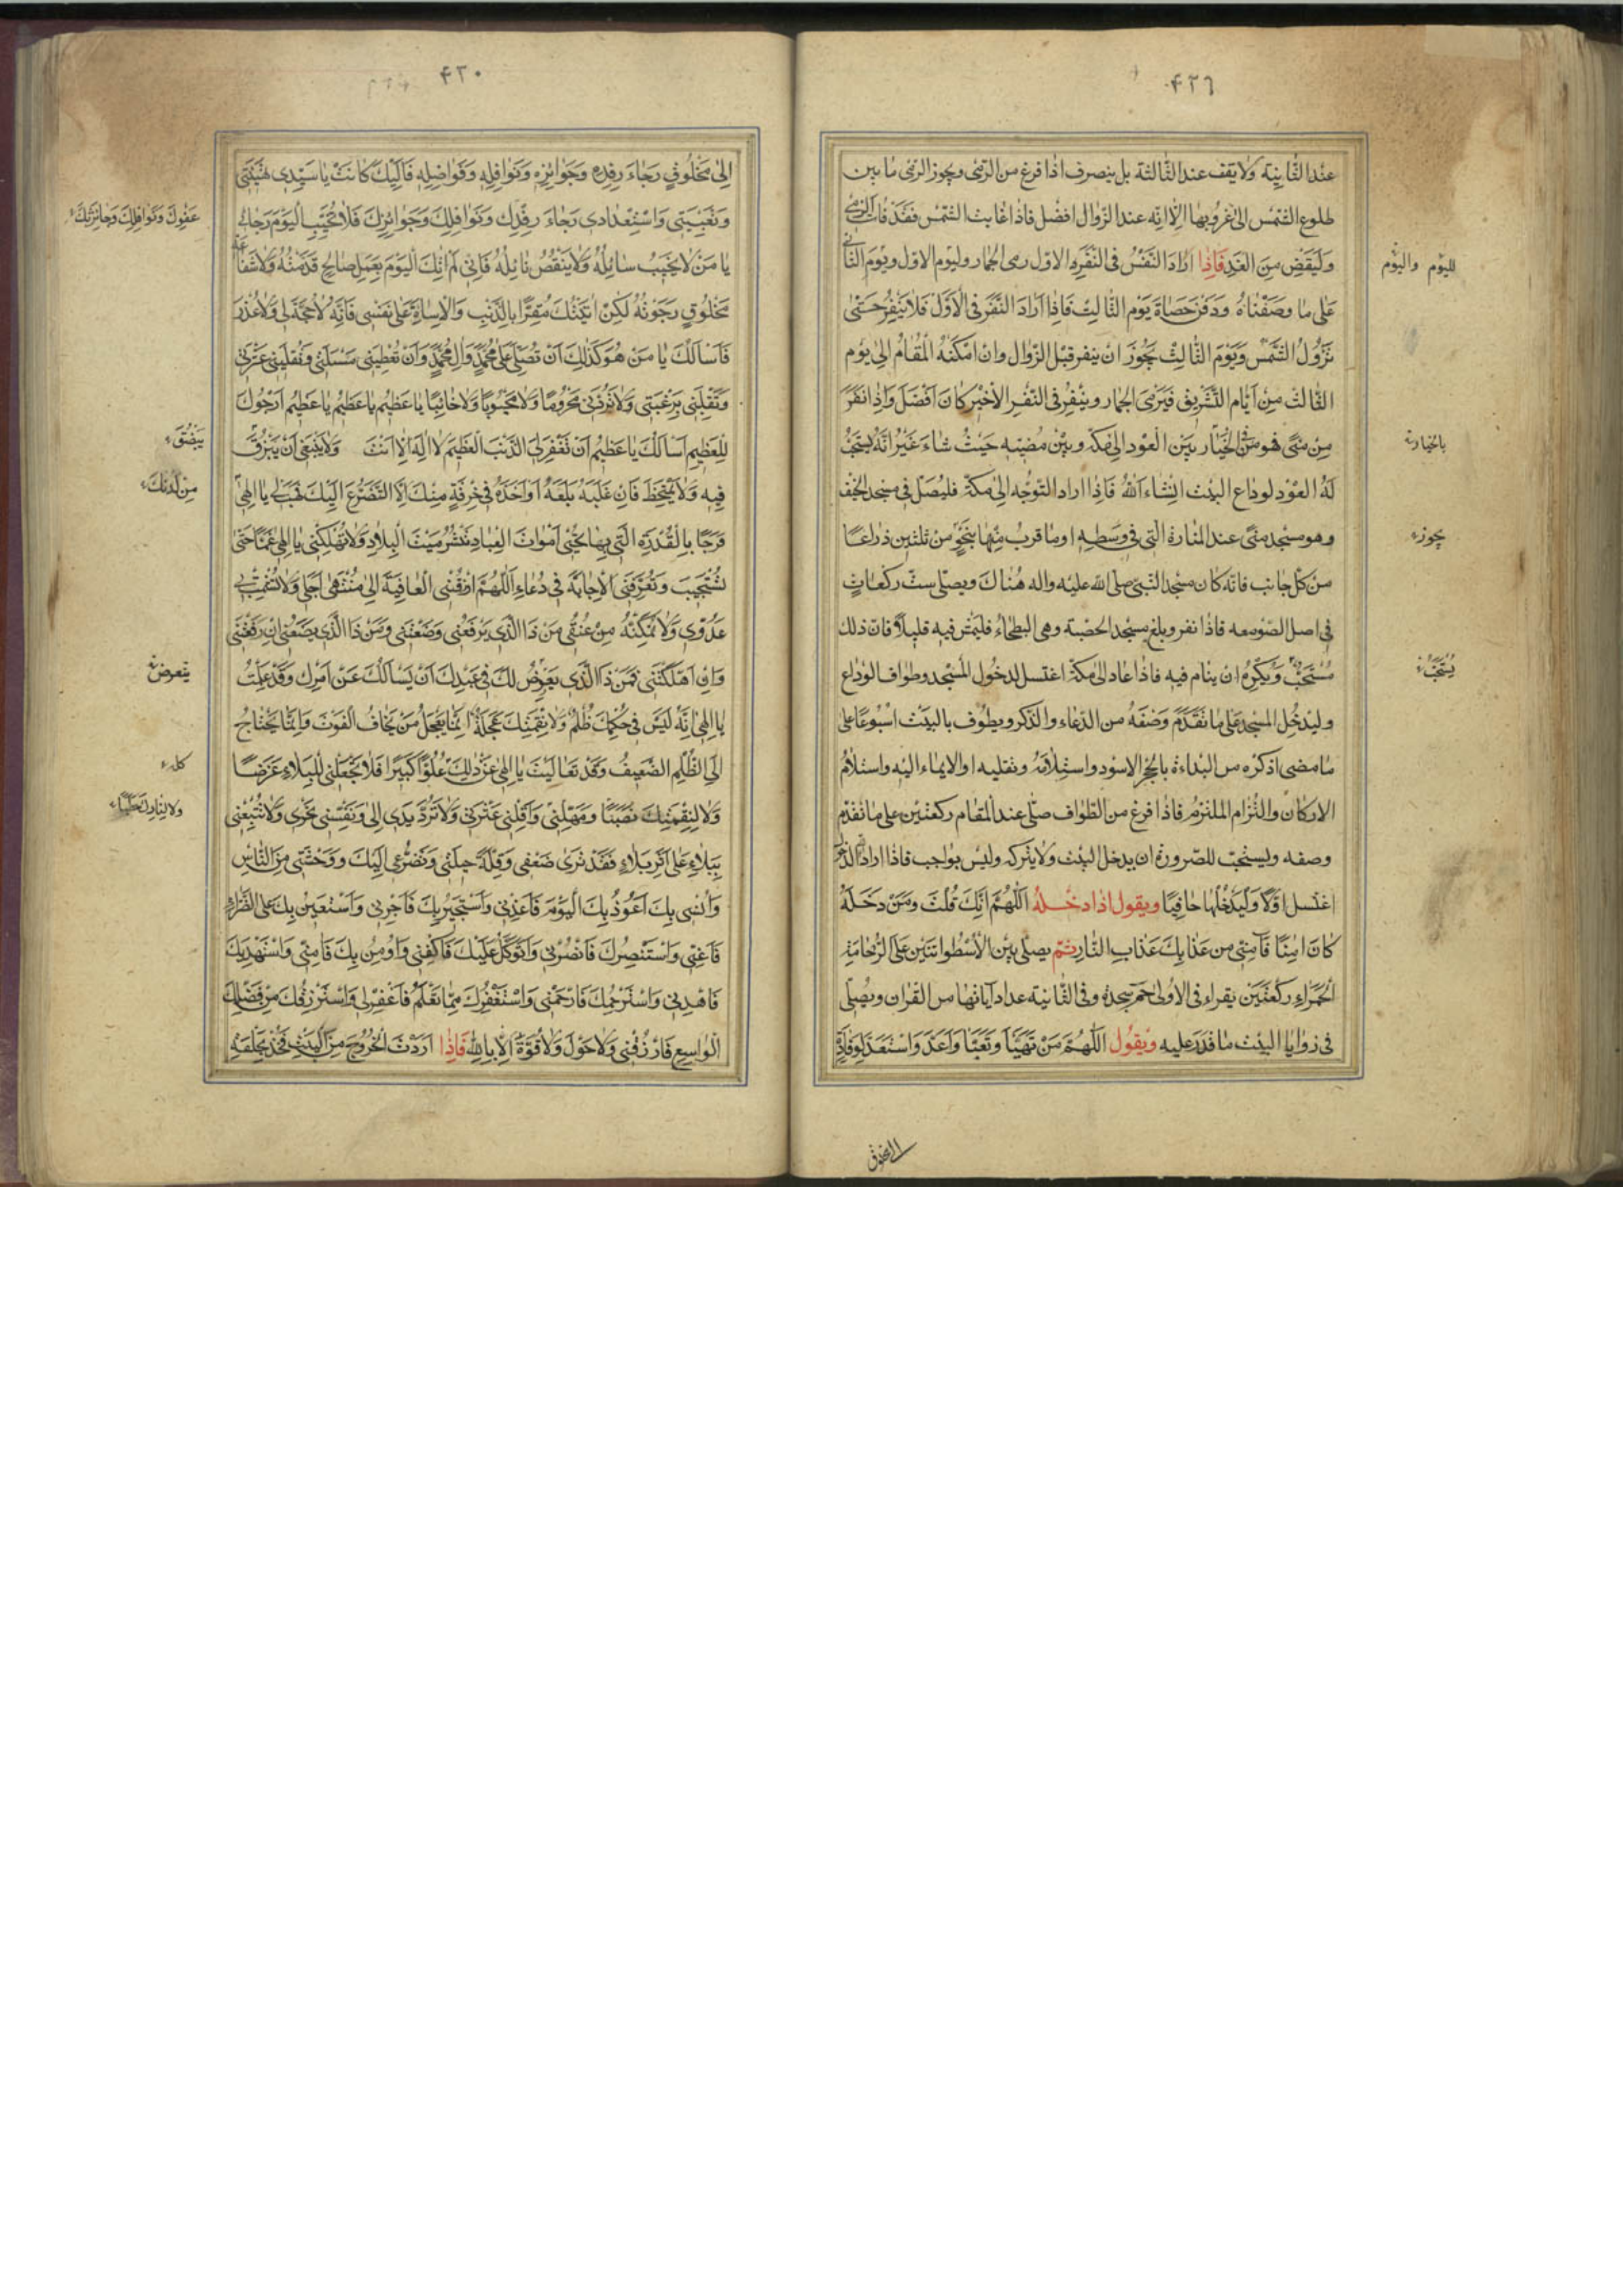 ٤٢٦
عند الثّانية ولا يقف عند الثّالثة بل ينصرف اذا فرغ من الرّمى ويجوز الرمى ما بين
طلوع الشّمس الى غروبها الّا انّه عند الزّوال افضل فاذا غابت الشّمس فقد فات الرمى
وليقض من الغد فاذا اراد النفس فى النفر الاول رمى الجمار وليوم الاول ويوم الثانى
لليوم واليوم
على ما وصفناه ودفن حصاة يوم الثالث فاذا اراد النفر فى الاول فلا ينفر حتى
تزول الشّمس ويوم الثالث يجوز ان ينفر قبل الزوال وان امكنه المقام الى يوم
الثالث من ايام التشريق فيرمى الجمار وينفر فى النفر الاخير كان افضل واذا نفر
من منى فهو من الخيار بين العود الى مكة وبين مضيه حيث شاء غير انه يستحب
بالخيار
له العود لوداع البيت انشاء الله فاذا اراد التوجه الى مكة فليصل فى مسجد الخيف
وهو مسجد منى عند المنارة التى فى وسطه او ما قرب منها بنحو من ثلثين ذراعا
يجوز
من كل جانب فانه كان مسجد النبى صلى الله عليه واله هناك ويصلى ست ركعات
فى اصل الصومعه فاذا نفر وبلغ مسجد الحصبة وهى البطحاء فليمش فيه قليلا فان ذلك
مستحب ويكره ان ينام فيه فاذا عاد الى مكة اغتسل لدخول المسجد وطواف الوداع
يستحب
وليدخل المسجد على ما تقدم وصفه من الدعاء والذكر ويطوف بالبيت اسبوعا على
ما مضى اذكره من البداءة بالحجر الاسود واستلامه وتقليه او الايماء اليه واستلام
الاركان والتزام الملتزم فاذا فرغ من الطواف صلى عند المقام ركعتين على ما تقدم
وصفه وليستحب للصرورة ان يدخل البيت ولا يتركه وليس بواجب فاذا اراد
اغتسل اولا وليدخلها حافيا ويقول اذا دخله اللهم انك قلت ومن دخله
كان امنا فامنى من عذابك عذاب النار ثم يصلى بين الاسطوانتين على الرخامة
الحمراء ركعتين يقراء فى الاولى حم سجدة وفى الثانية عدد آياتها من القران ويصلى
فى زوايا البيت ما قدر عليه ويقول اللهم من تهيا وتعبا واعد واستعد لوفادة
الى مخلوق
٤٣٠
الى مخلوق رجاء رفده وجوائزه ونوافله وفواضله فاليك كانت يا سيدى تهيئتى
وتعبيتى واستعدادى رجاء رفدك ونوافلك وجوائزك فلا تخيب اليوم رجائى
عفوك ونوافلك وجائزتك
يا من لا يخيب سائله ولا ينقص نائله فانى لم اتك اليوم بعمل صالح قدمته ولا شفاعة
مخلوق رجوته لكن اتيتك مقرا بالذنب والاساة على نفسى فانه لا حجة لى ولا عذر
فاسالك يا من هو كذلك ان تصلى على محمد وال محمد وان تعطينى مسئلتى وتقلينى عثرتى
وتقلبنى برغبتى ولا تردنى محروما ولا مجبوبا ولا خائبا يا عظيم يا عظيم يا عظيم ارجوك
للعظيم اسالك يا عظيم ان تغفر لى الذنب العظيم لا اله الا انت ولا ينبغى ان يبزق
يبصق
فيه ولا يمتخط فان غلبه بلعه او اخذه فى خرقة منك الا التضرع اليك فهب لى يا الهى
من لدنك
فرجا بالقدرة التى بها تحيى اموات العباد تنشر ميت البلاد ولا تهلكنى يا الهى غما حتى
تستجيب وتعرفنى الاجابة فى دعاء اللهم ارزقنى العافية الى منتهى اجلى ولا تشمت بى
عدوى ولا تمكنه من عنقى من ذا الذى يرفعنى وضعتنى ومن ذا الذى يضعنى ان رفعتنى
وان اهلكتنى فمن ذا الذى يعرض لك فى عبدك ان يسالك عن امرك وقد علمت
يتعرض
يا الهى انه ليس فى حكمك ظلم ولا نقمتك عجلة انما يعجل من يخاف الفوت وانما يحتاج
الى الظلم الضعيف وقد تعاليت يا الهى عن ذلك علوا كبيرا فلا تجعلنى للبلاء غرضا
ولا لنقمتك نصبا ومهلنى واقلنى عثرتى ولا ترد يدى الى ونفسى نحرى ولا تتبعنى
ببلاء على اثر بلاء فقد ترى ضعفى وقلة حيلتى وتضرعى اليك ووحشتى من الناس
وانسى بك اعوذ بك اليوم فاعذنى واستجير بك فاجرنى واستعين بك على الضراء
فاعنى واستنصرك فانصرنى واتوكل عليك فاكفنى واومن بك فامنى واستهديك
فاهدنى واسترحمك فارحمنى واستغفرك مما تعلم فاغفر لى واسترزقك من فضلك
الواسع فارزقنى ولا حول ولا قوة الا بالله فاذا اردت الخروج من البيت فخذ بحلقه